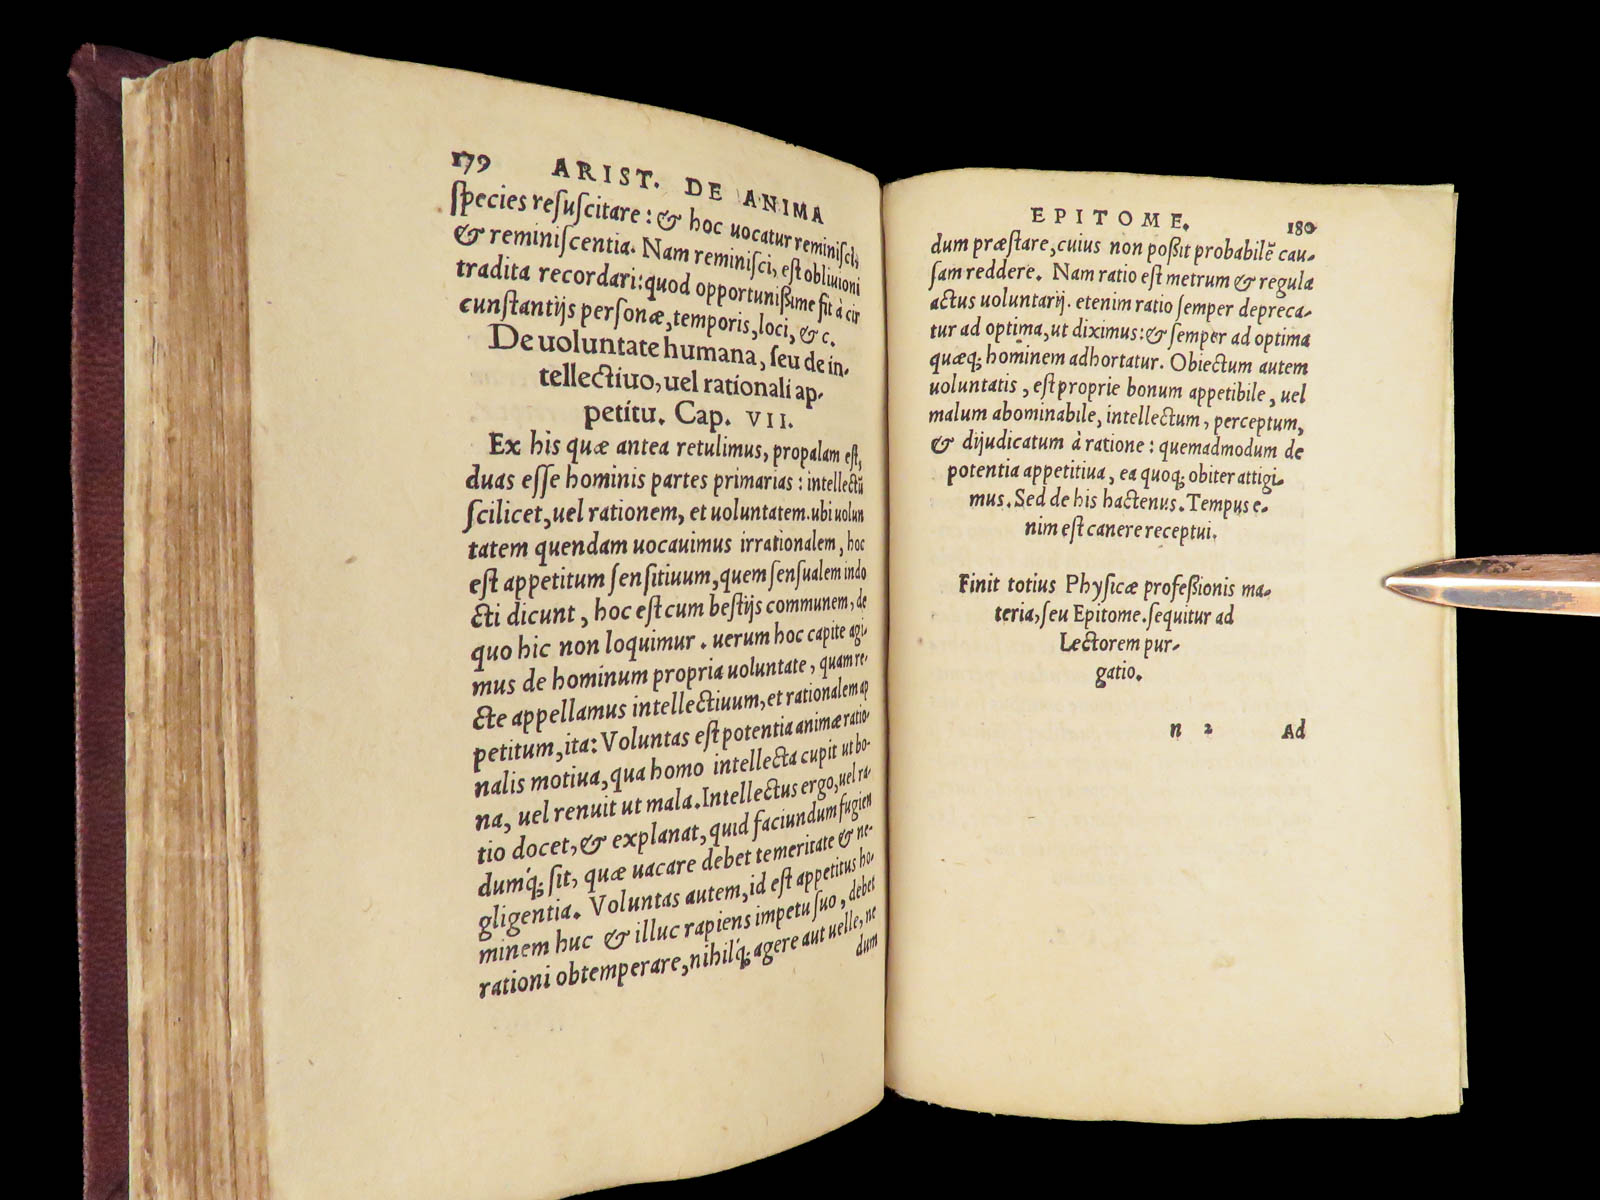 179 ARIST. DE ANIMA
species resuscitare: & hoc uocatur reminisci,
& reminiscentia. Nam reminisci, est obliuioni
tradita recordari: quod opportunissime fit à cir
cunstantijs personæ, temporis, loci, & c.
De uoluntate humana, seu de in-
tellectiuo, uel rationali ap-
petitu. Cap. VII.
Ex his quæ antea retulimus, propalam est,
duas esse hominis partes primarias: intellectū
scilicet, uel rationem, et uoluntatem. ubi uolun
tatem quendam uocauimus irrationalem, hoc
est appetitum sensitiuum, quem sensualem indo
cti dicunt, hoc est cum bestijs communem, de
quo hic non loquimur. uerum hoc capite agi-
mus de hominum propria uoluntate, quam re-
cte appellamus intellectiuum, et rationalem ap
petitum, ita: Voluntas est potentia animæ ratio-
nalis motiua, qua homo intellecta cupit ut bo-
na, uel renuit ut mala. Intellectus ergo, uel ra-
tio docet, & explanat, quid faciundum fugien
dumq́; sit, quæ uacare debet temeritate & ne-
gligentia. Voluntas autem, id est appetitus ho-
minem huc & illuc rapiens impetu suo, debet
rationi obtemperare, nihilq́; agere aut uelle, ne
dum
EPITOME. 180
dum præstare, cuius non possit probabilē cau-
sam reddere. Nam ratio est metrum & regula
actus uoluntarij. etenim ratio semper depreca-
tur ad optima, ut diximus: & semper ad optima
quæq; hominem adhortatur. Obiectum autem
uoluntatis, est proprie bonum appetibile, uel
malum abominabile, intellectum, perceptum,
& dijudicatum à ratione: quemadmodum de
potentia appetitiua, ea quoq; obiter attigi-
mus. Sed de his hactenus. Tempus e-
nim est canere receptui.
Finit totius Physicæ professionis ma-
teria, seu Epitome. sequitur ad
Lectorem pur-
gatio.
n 2 Ad